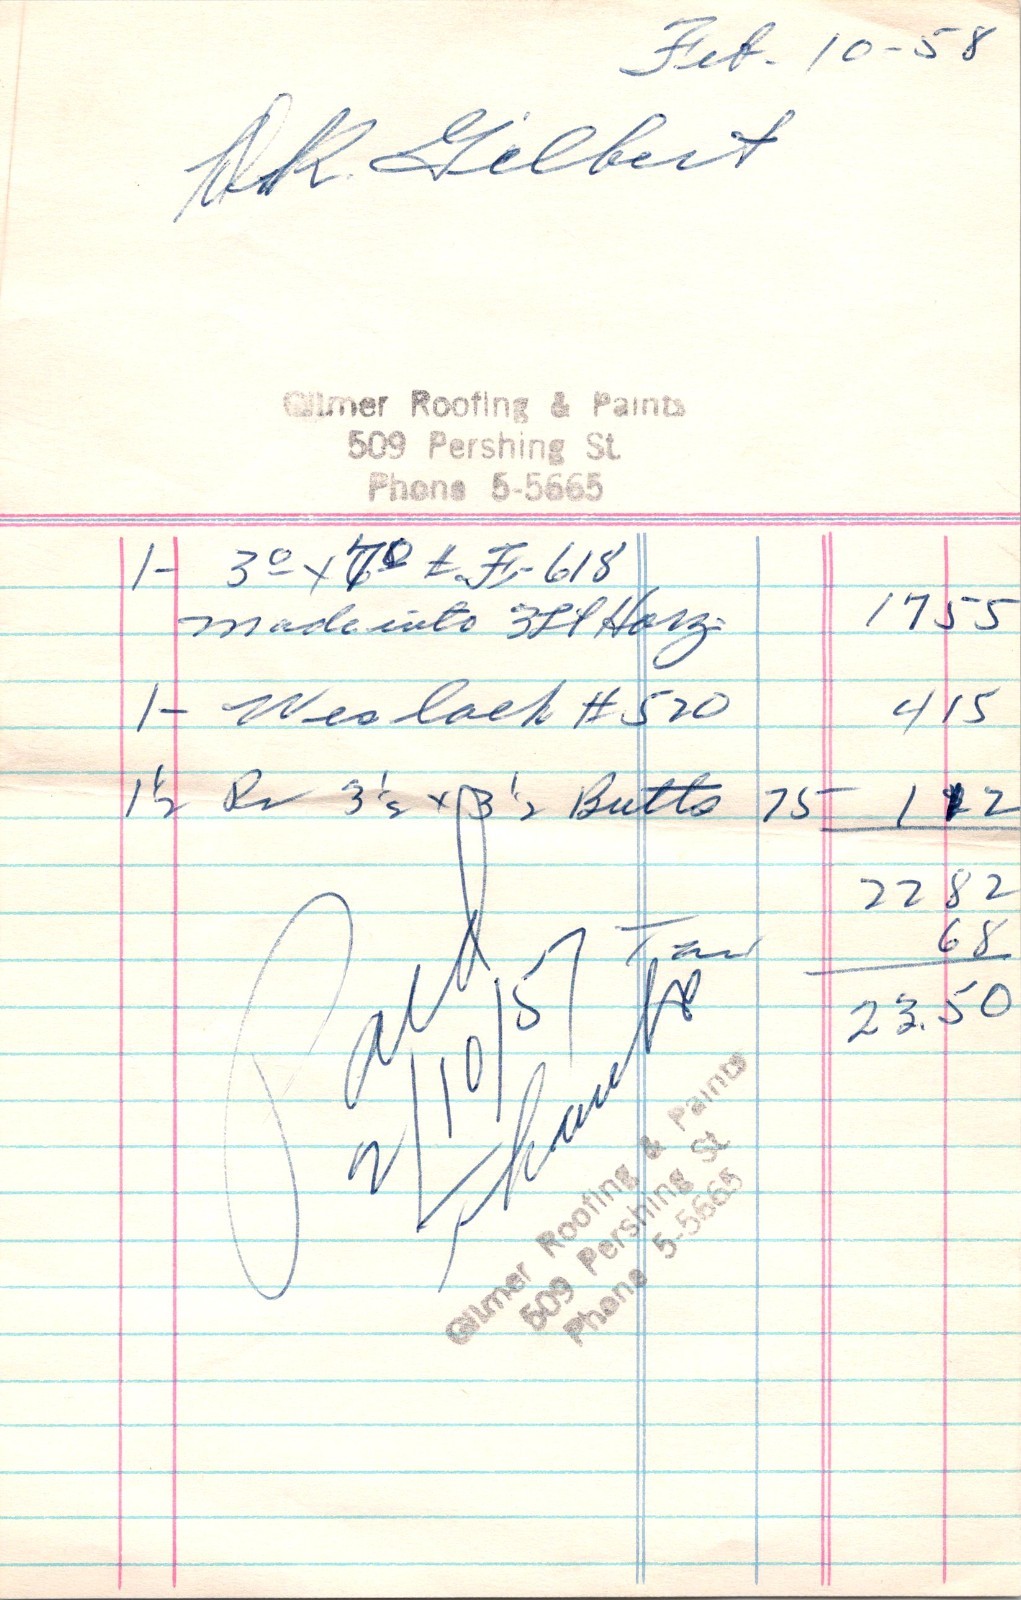 Feb. 10-58
D.R. Gilbert
Gilmer Roofing & Paints
509 Pershing St.
Phone 5-5665
1- 3⁰ x 7⁰ F-618
made into 3Lt Horz. 17 55
1- Weslock #520 4 15
1½ Pr 3½ x 3½ Butts 75 1 12
22 82
Tax 68
23.50
Paid
2/10/57
Thanks
Gilmer Roofing & Paints
509 Pershing St
Phone 5-5665